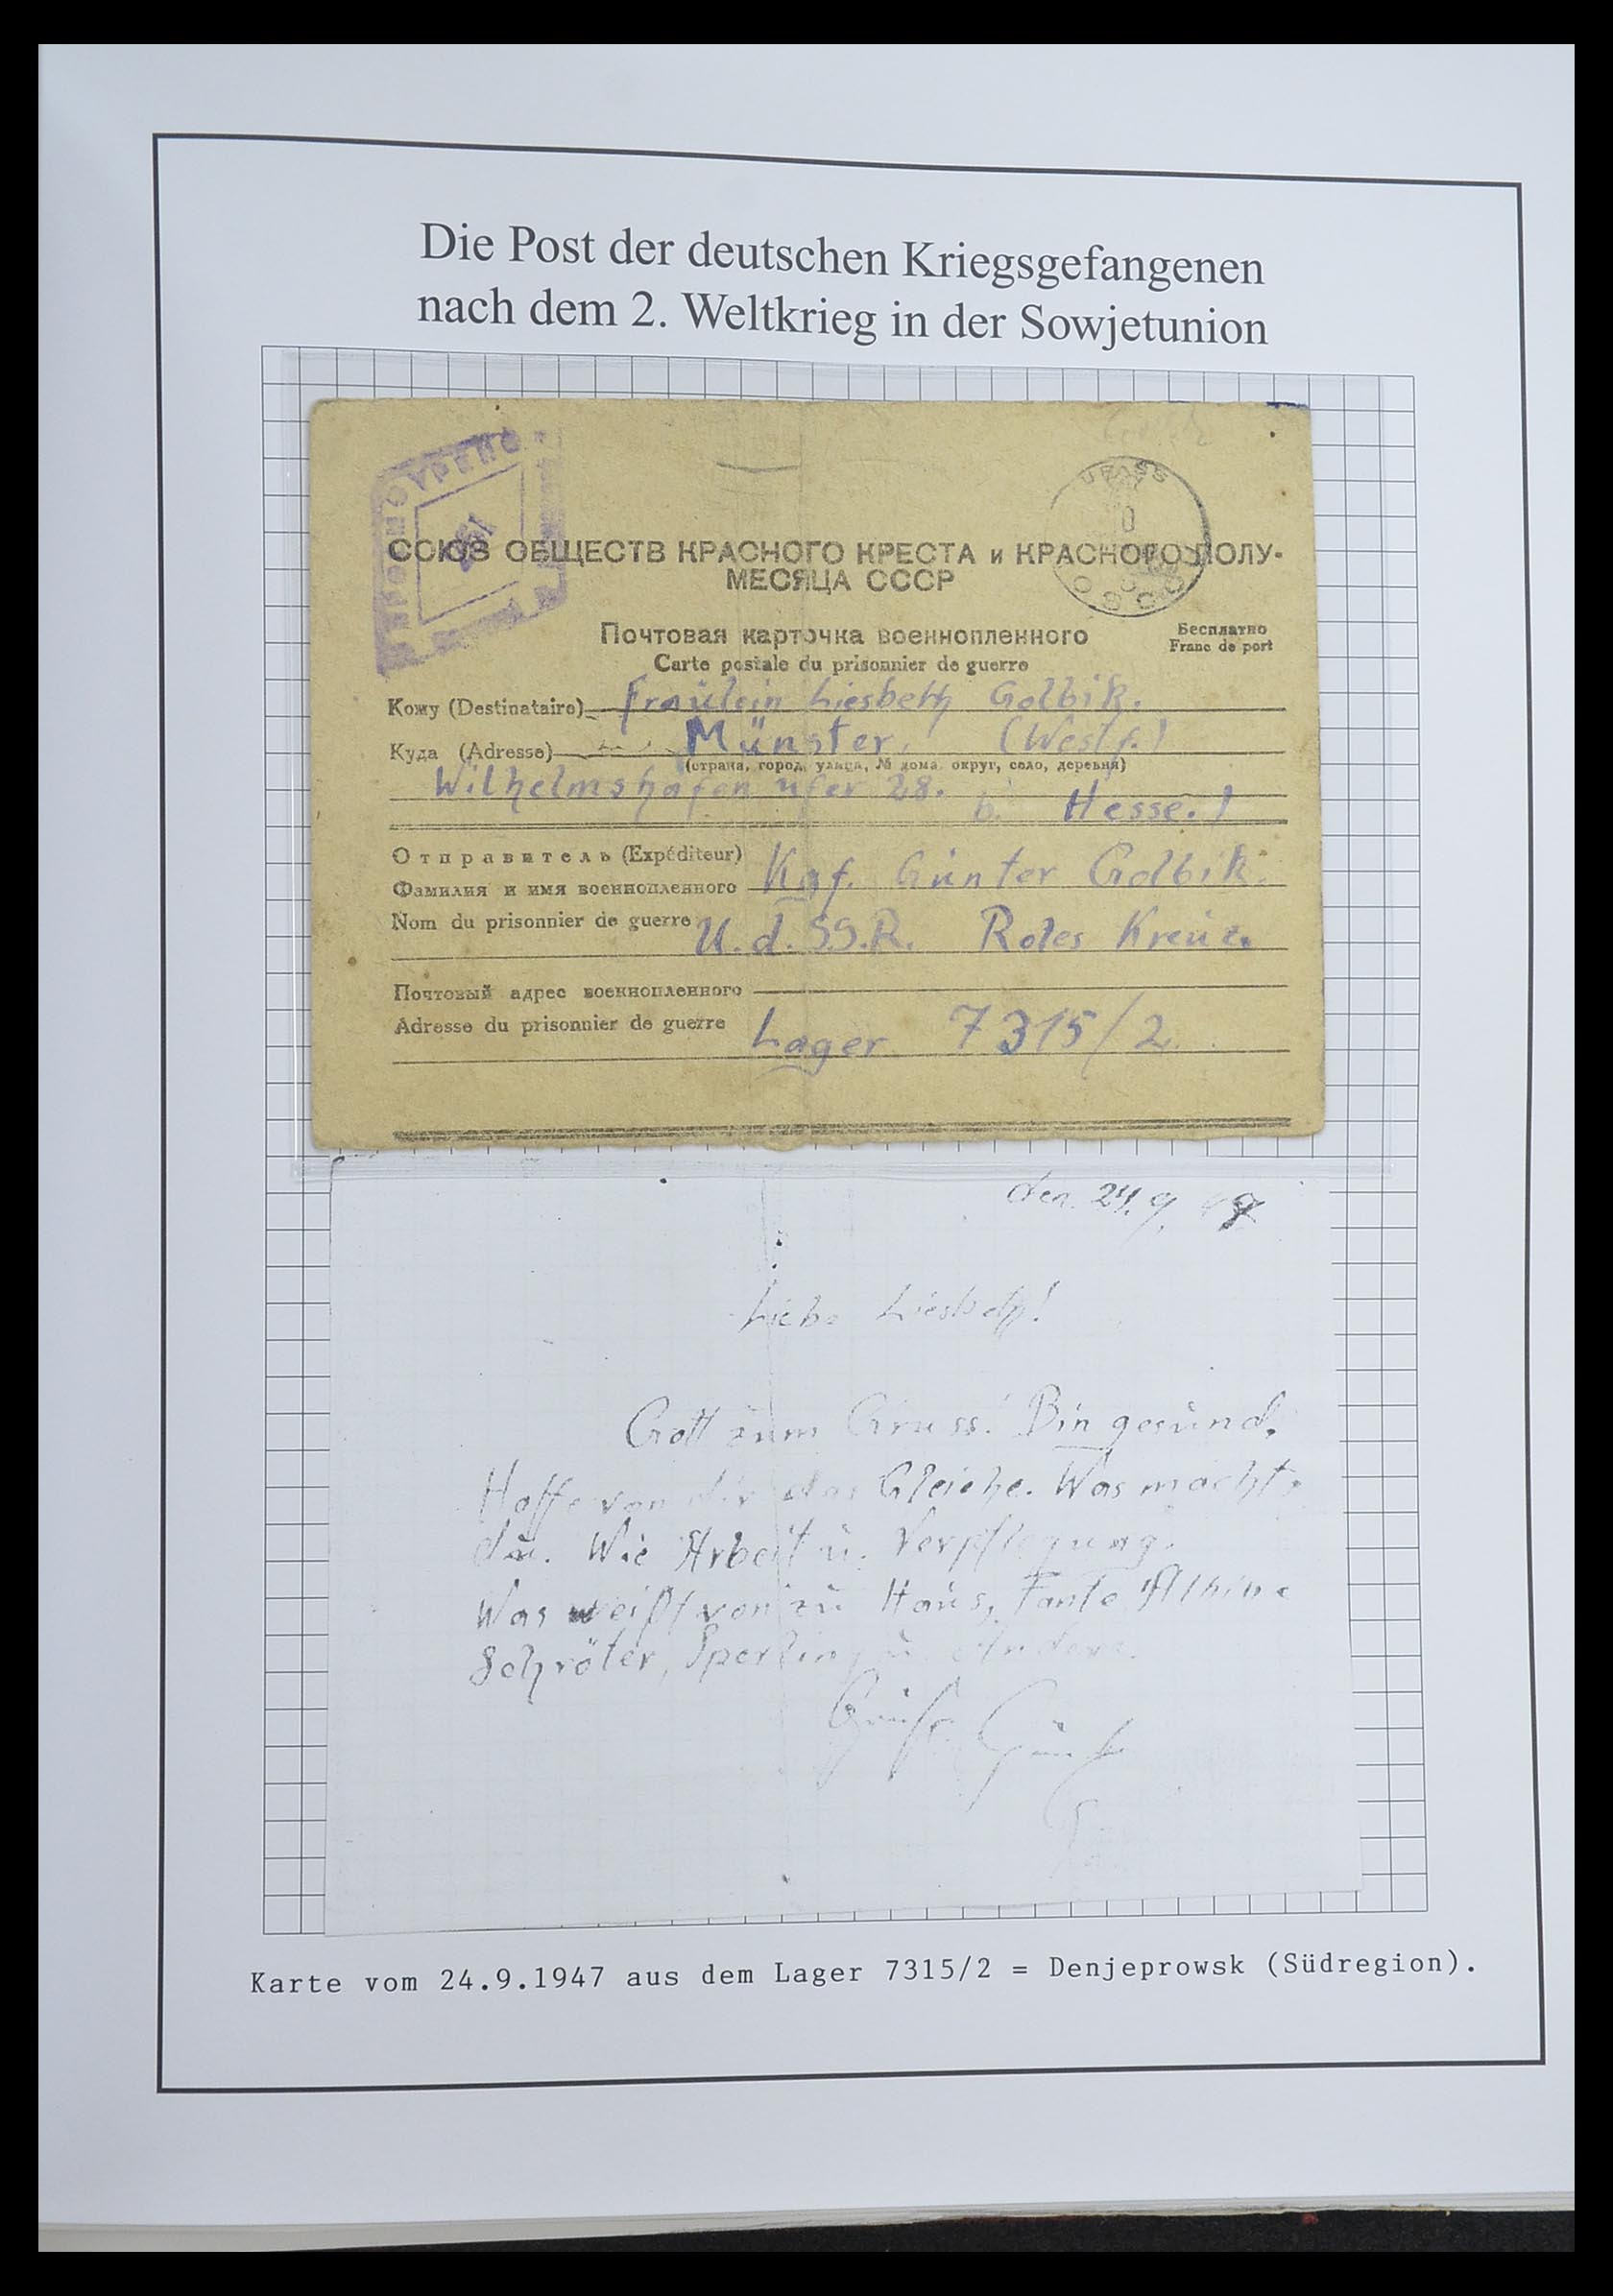 Die Post der deutschen Kriegsgefangenen
nach dem 2. Weltkrieg in der Sowjetunion
СОЮЗ ОБЩЕСТВ КРАСНОГО КРЕСТА и КРАСНОГО ПОЛУ-
МЕСЯЦА СССР
Почтовая карточка военнопленного
Бесплатно
Carte postale du prisonnier de guerre
Franc de port
Кому (Destinataire) Fräulein Liesbeth Golbik.
Куда (Adresse) Münster, (Westf.)
(страна, город, улица, № дома, округ, село, деревня)
Wilhelmshafen ufer 28.
b. Hesse.!
Отправитель (Expéditeur)
Фамилия и имя военнопленного Kgf. Günter Golbik.
Nom du prisonnier de guerre U.d.S.S.R. Rotes Kreuz.
Почтовый адрес военнопленного
Adresse du prisonnier de guerre Lager 7315/2
den. 24.9. 47
Liebe Liesbeth!
Gott zum Gruss! Bin gesund.
Hoffe von dir das Gleiche. Was machst
du. Wie Arbeit u. Verpflegung.
Was weißt von zu Haus, Tante
Schröter, Sperling u. Andere.
Karte vom 24.9.1947 aus dem Lager 7315/2 = Denjeprowsk (Südregion).